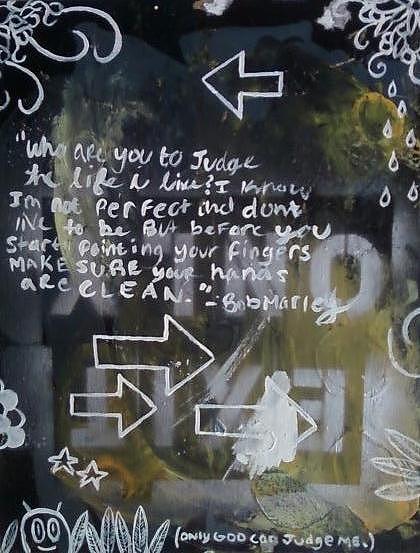 "Who are you to Judge
the life i live? I know
Im not Perfect and dont
live to be But before you
Start Pointing your fingers
MAKE SURE your hands
are CLEAN." - Bob Marley
(ONLY GOD can Judge ME.)